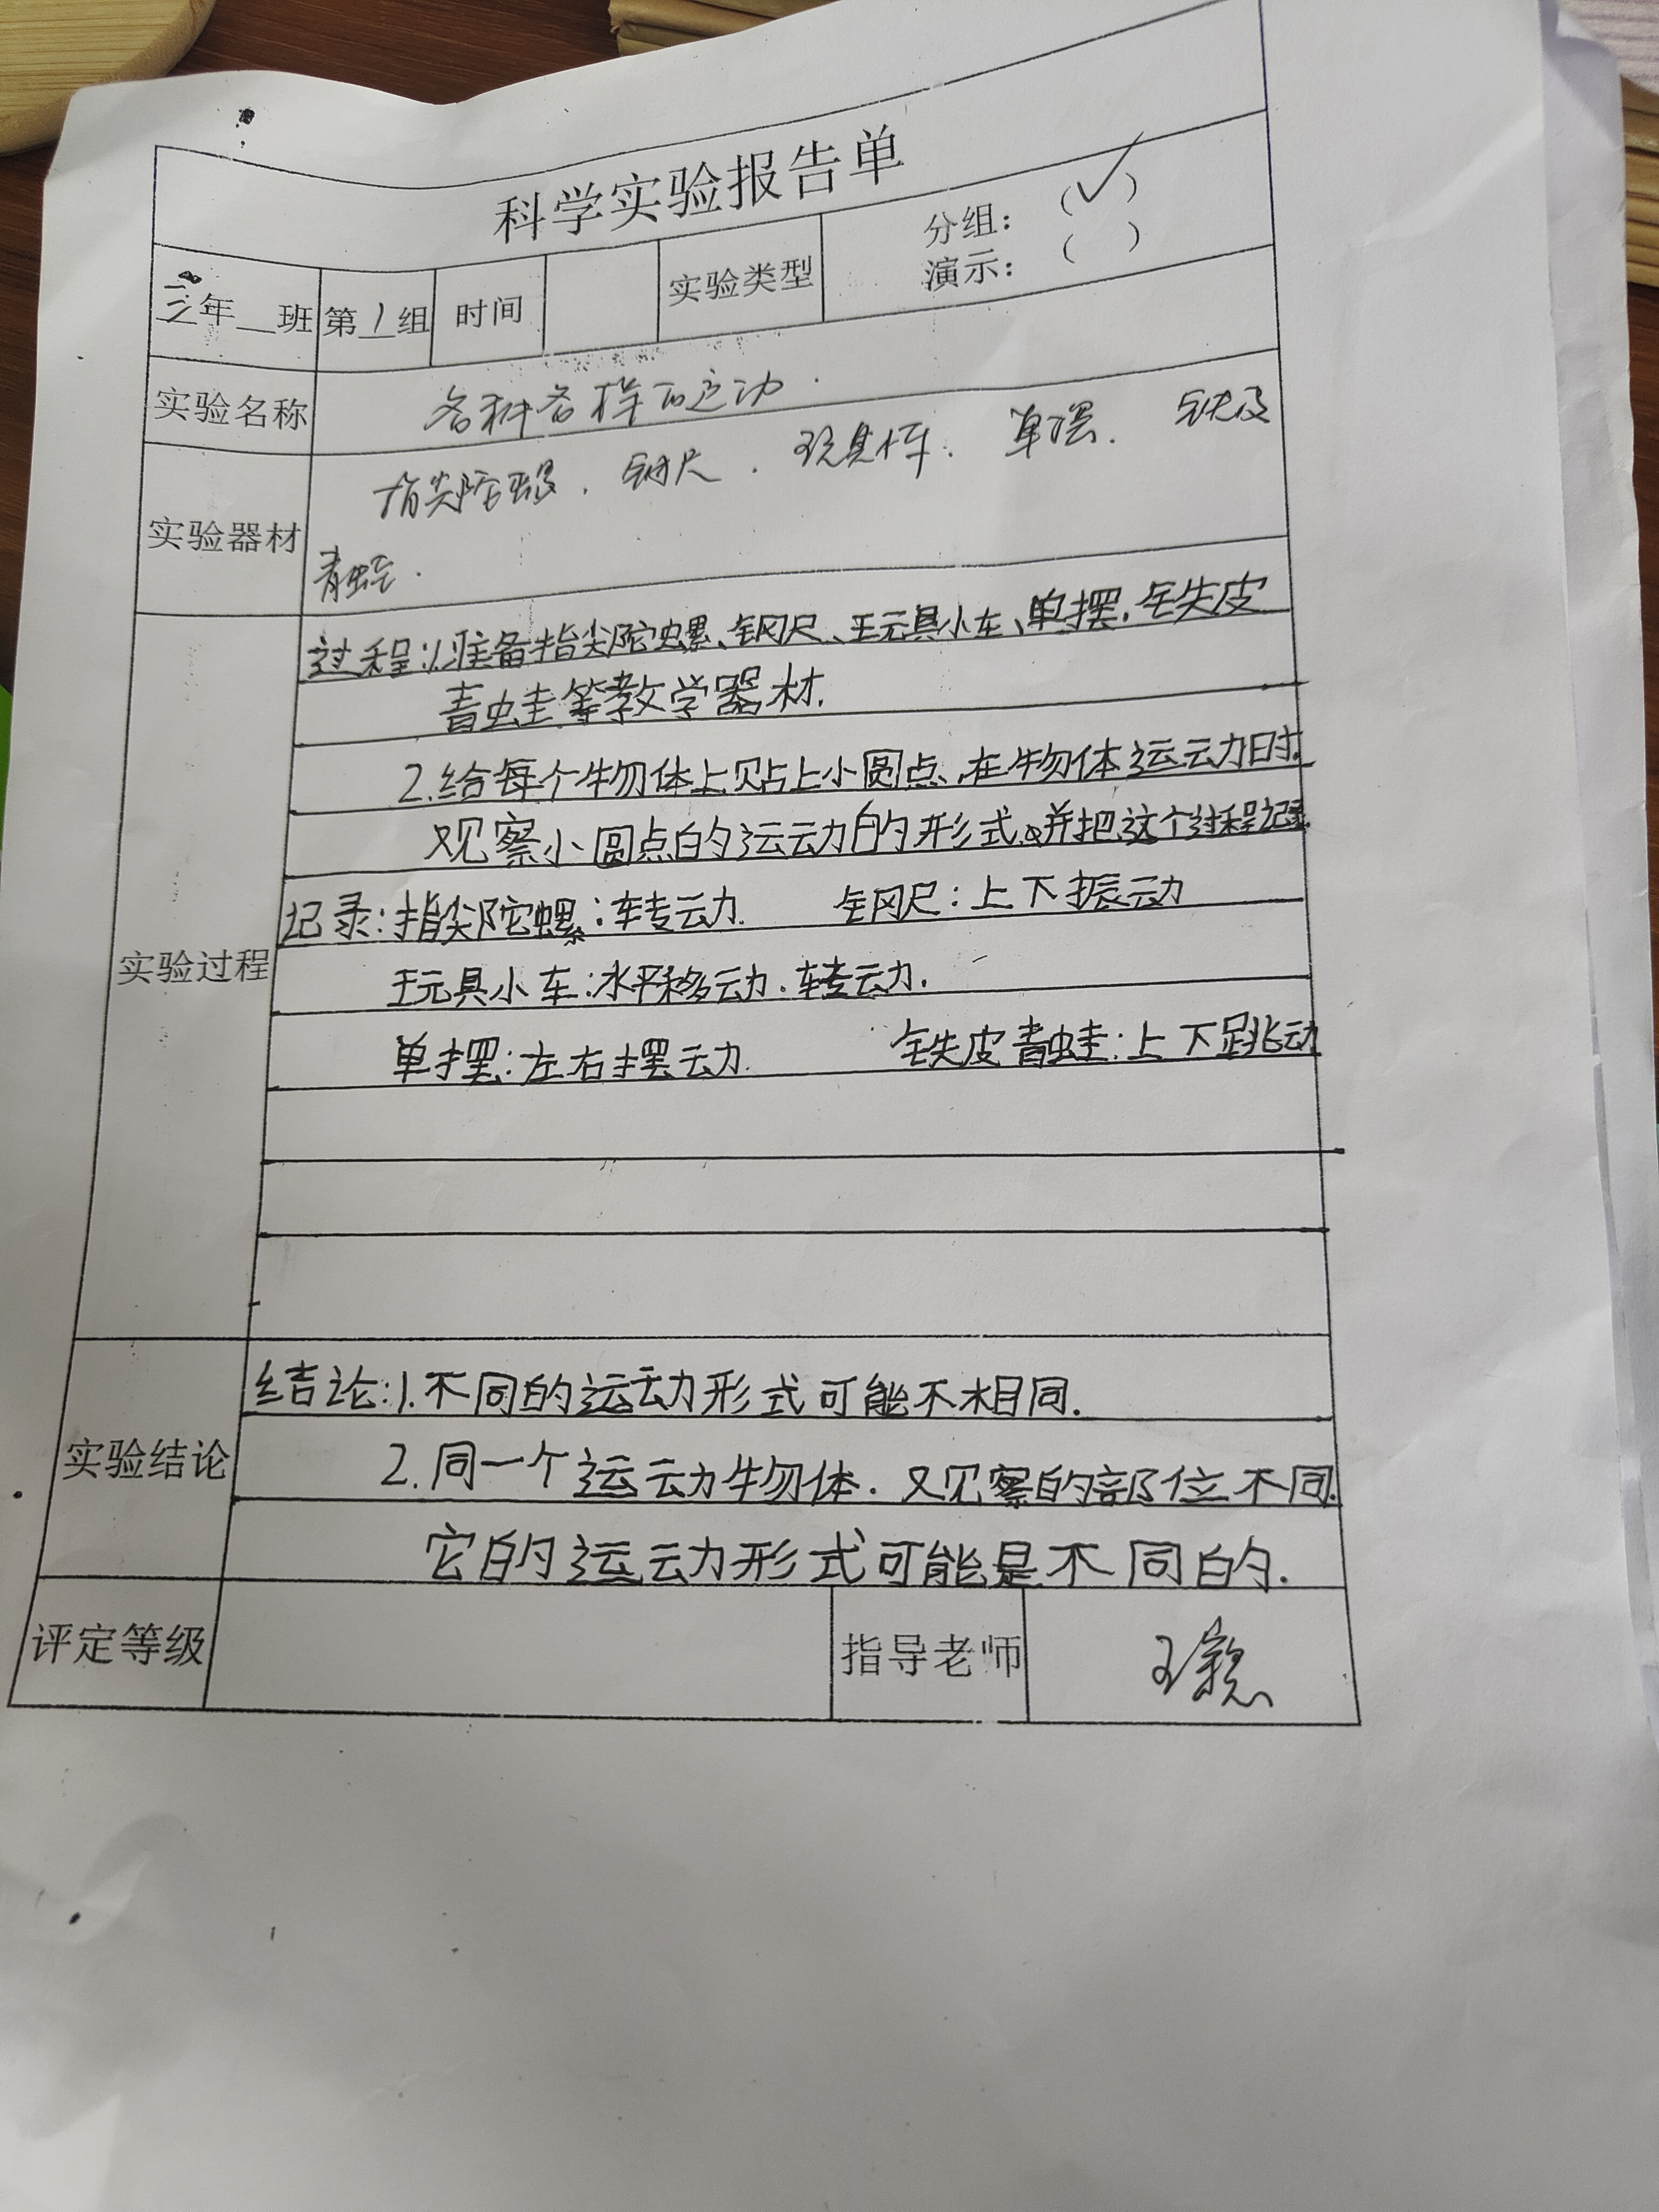 科学实验报告单
三年__班 第1组 时间 实验类型 分组：（✓）
演示：（ ）
实验名称 各种各样的运动.
实验器材 指尖陀螺. 钢尺. 玩具小车. 单摆. 铁皮
青蛙.
过程:1.准备指尖陀螺、钢尺、玩具小车、单摆.铁皮
青蛙等教学器材.
2.给每个物体上贴上小圆点、在物体运动时.
观察小圆点的运动的形式。并把这个过程记录.
实验过程
记录:指尖陀螺:转动. 钢尺:上下振动
玩具小车:水平移动.转动.
单摆:左右摆动. 铁皮青蛙:上下跳动
实验结论
结论:1.不同的运动形式可能不相同.
2.同一个运动物体.观察的部位不同.
它的运动形式可能是不同的.
评定等级 指导老师